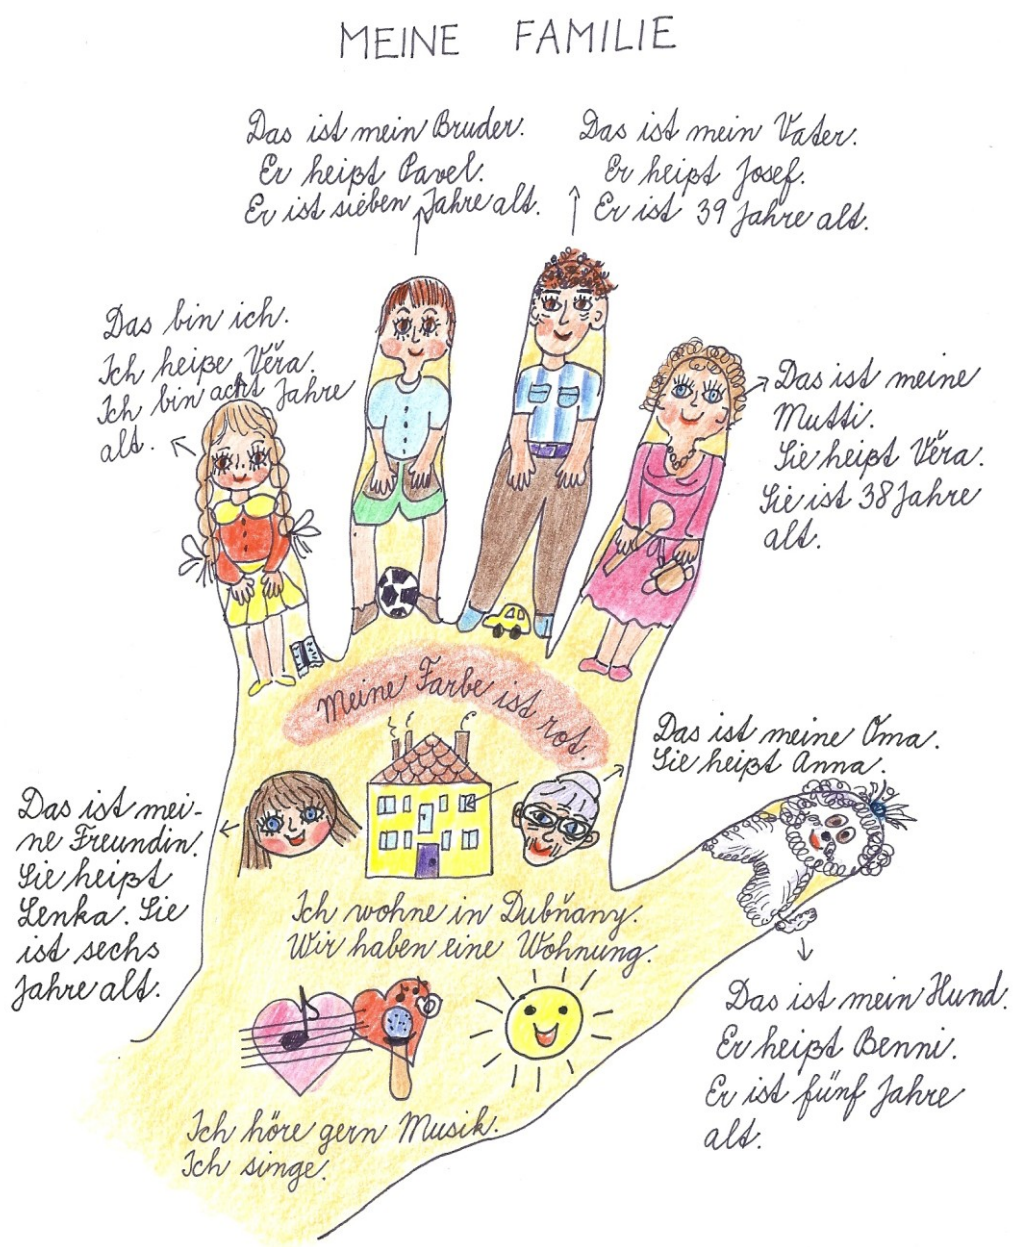 MEINE FAMILIE
Das ist mein Bruder.
Er heißt Pavel.
Er ist sieben Jahre alt.
Das ist mein Vater.
Er heißt Josef.
Er ist 39 Jahre alt.
Das bin ich.
Ich heiße Věra.
Ich bin acht Jahre
alt.
Das ist meine
Mutti.
Sie heißt Věra.
Sie ist 38 Jahre
alt.
Meine Farbe ist rot.
Das ist meine Oma.
Sie heißt Anna.
Das ist mei-
ne Freundin.
Sie heißt
Lenka. Sie
ist sechs
Jahre alt.
Ich wohne in Dubňany.
Wir haben eine Wohnung.
Das ist mein Hund.
Er heißt Benni.
Er ist fünf Jahre
alt.
Ich höre gern Musik.
Ich singe.